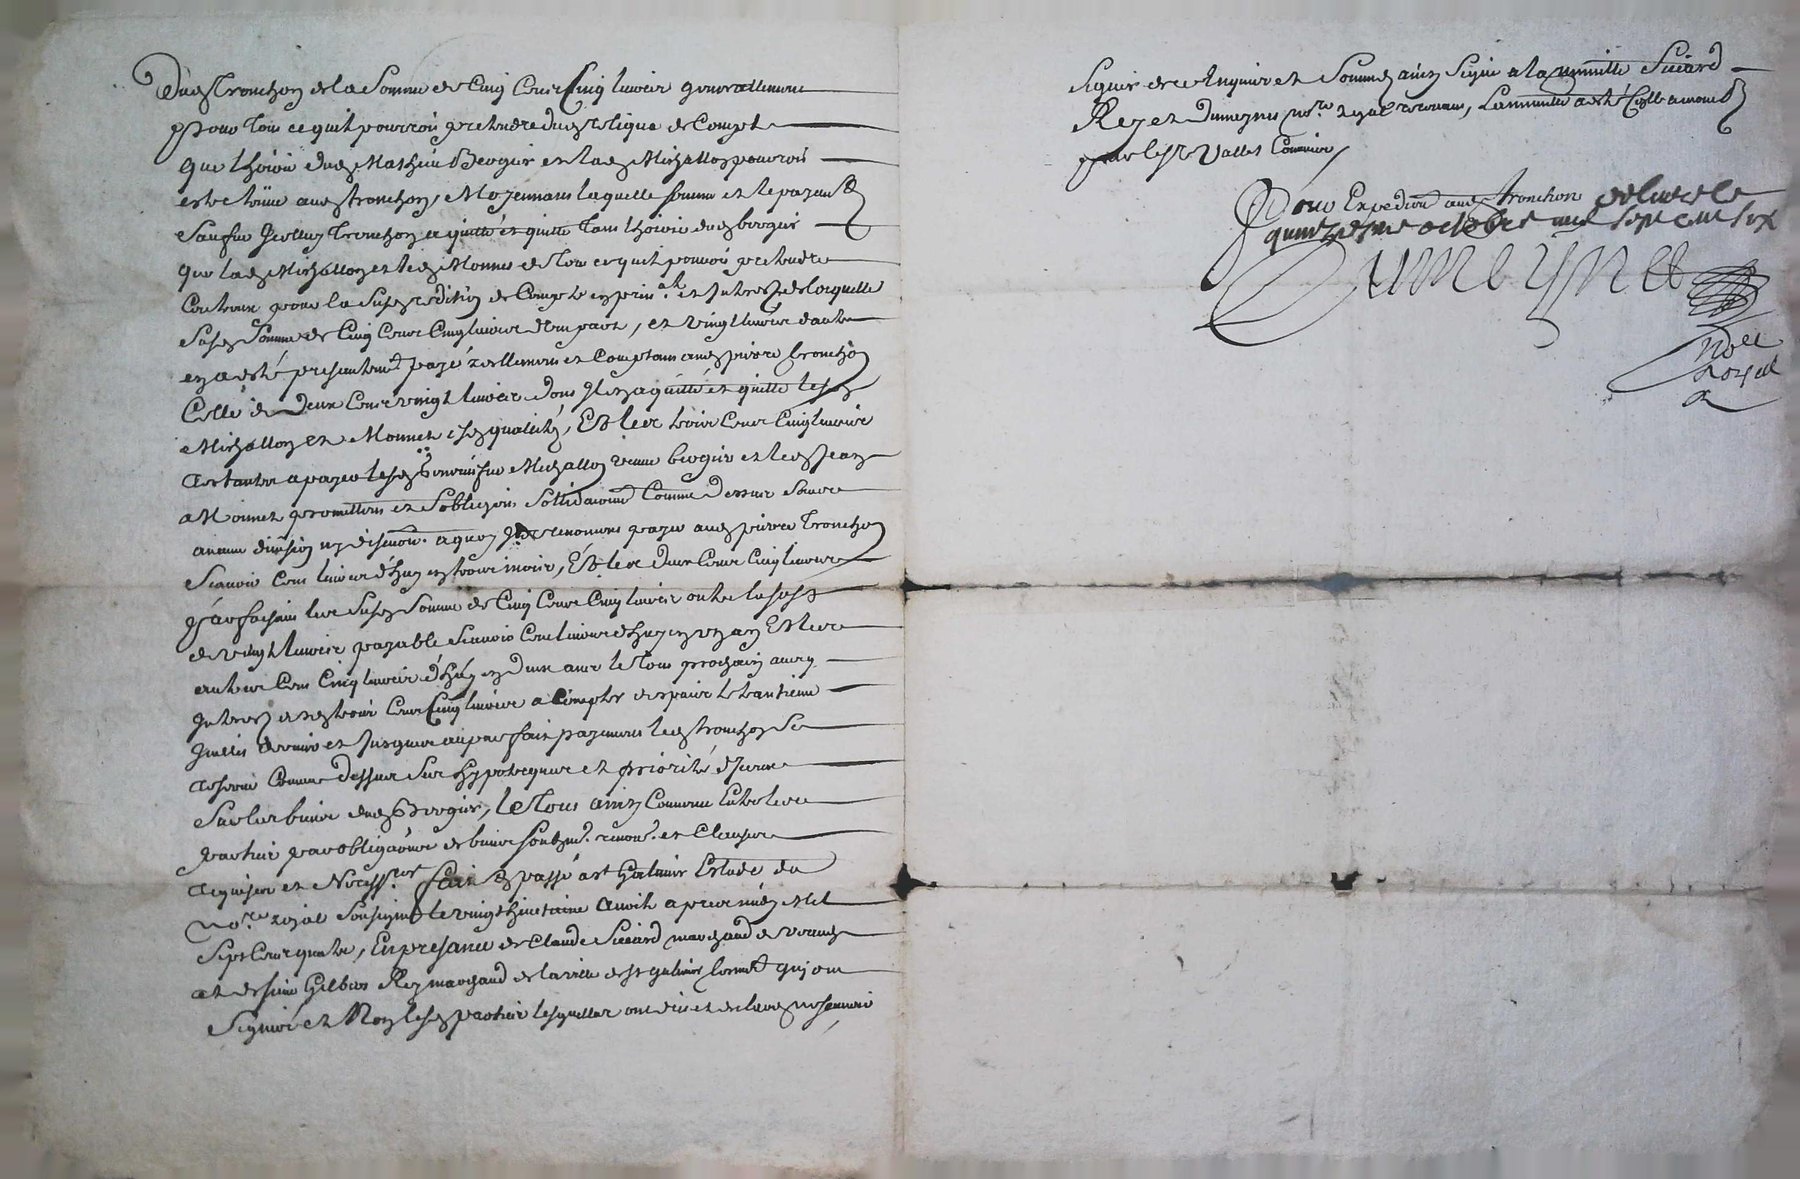 dud Tronchon de la Somme de Cinq Cens Cinq livres generallement
pour Tout ce quil pourroit pretendre dud reliqua de Compte
que lhoirie dud Mathieu Bergier et lad Michallon pourroit
estre tenüe aud tronchon, Moyennans laquelle somme et le payemt
Sauf Icelluy Tronchon a quitté et quitte Tant lhoirie dud bergier
que lad Michallon et led Monnet de Tout ce quil pouvoit pretendre
Contreux pour la susd reddition de Compte en prin.al et Interest de laquelle
susd Somme de Cinq Cens Cinq livres d'une part, et vingt livres dautre
en a esté presentemt payé reellement et Comptant aud pierre tronchon
Celle de Deux Cens vingt livres dont Il en a quitté et quitte lesd
Michallon et Monnet esd qualités, Et les trois Cens Cinq livres
restantes a payer lesd Michallon veuve bergier et led Jean
Monnet promettent et Sobligent Sollidairemt Comme Dessus Sans
aucune division ny discution. a quoy Ils renoncent payer aud pierre Tronchon
Scavoir Cent livres d'huy en trois mois, Et les deux Cens Cinq livres
parfaisant les susd Somme de Cinq Cens Cinq livres outre la susd
de vingt livres payable Scavoir Cent livres d'huy en un an Et les
autres Cent Cinq livres d'huy en deux ans le Tout prochain avec
Interest desd trois Cens Cinq livres a Compter depuis le trantieme
Juillet dernier et Jusques au parfait payement led tronchon Se
reserve Comme dessus Ses hypoteques et priorité d'Iceux
Sur les biens dud Bergier, le Tout ainsy Convenu Entre les
parties par obligations de biens soubzm. renon. et Clauses
requises et Necess.res fait et passé a st Galmier Estude du
No.re royal Soubsigné le vingt huictieme Avoil apres midy Mil
Sept Cens quatre, En presance de Claude Siccard marchand de
et de sieur Gilbert Rey marchand de la ville de st galmier qui ont
Signé et Non lesd parties lesquelles ont dit et declaré ne scavoir
Signer de ce Enquis et Sommés ainsy Signé a la minutte Siccard
Rey et Dumeynet no.re royal recevant, La minutte a esté Collée a
par le Sr Vallet Commis
Pour Expedition aud tronchon delivrée le
quinziesme octobre mil sept cens six
Dumeynet
nore
royal